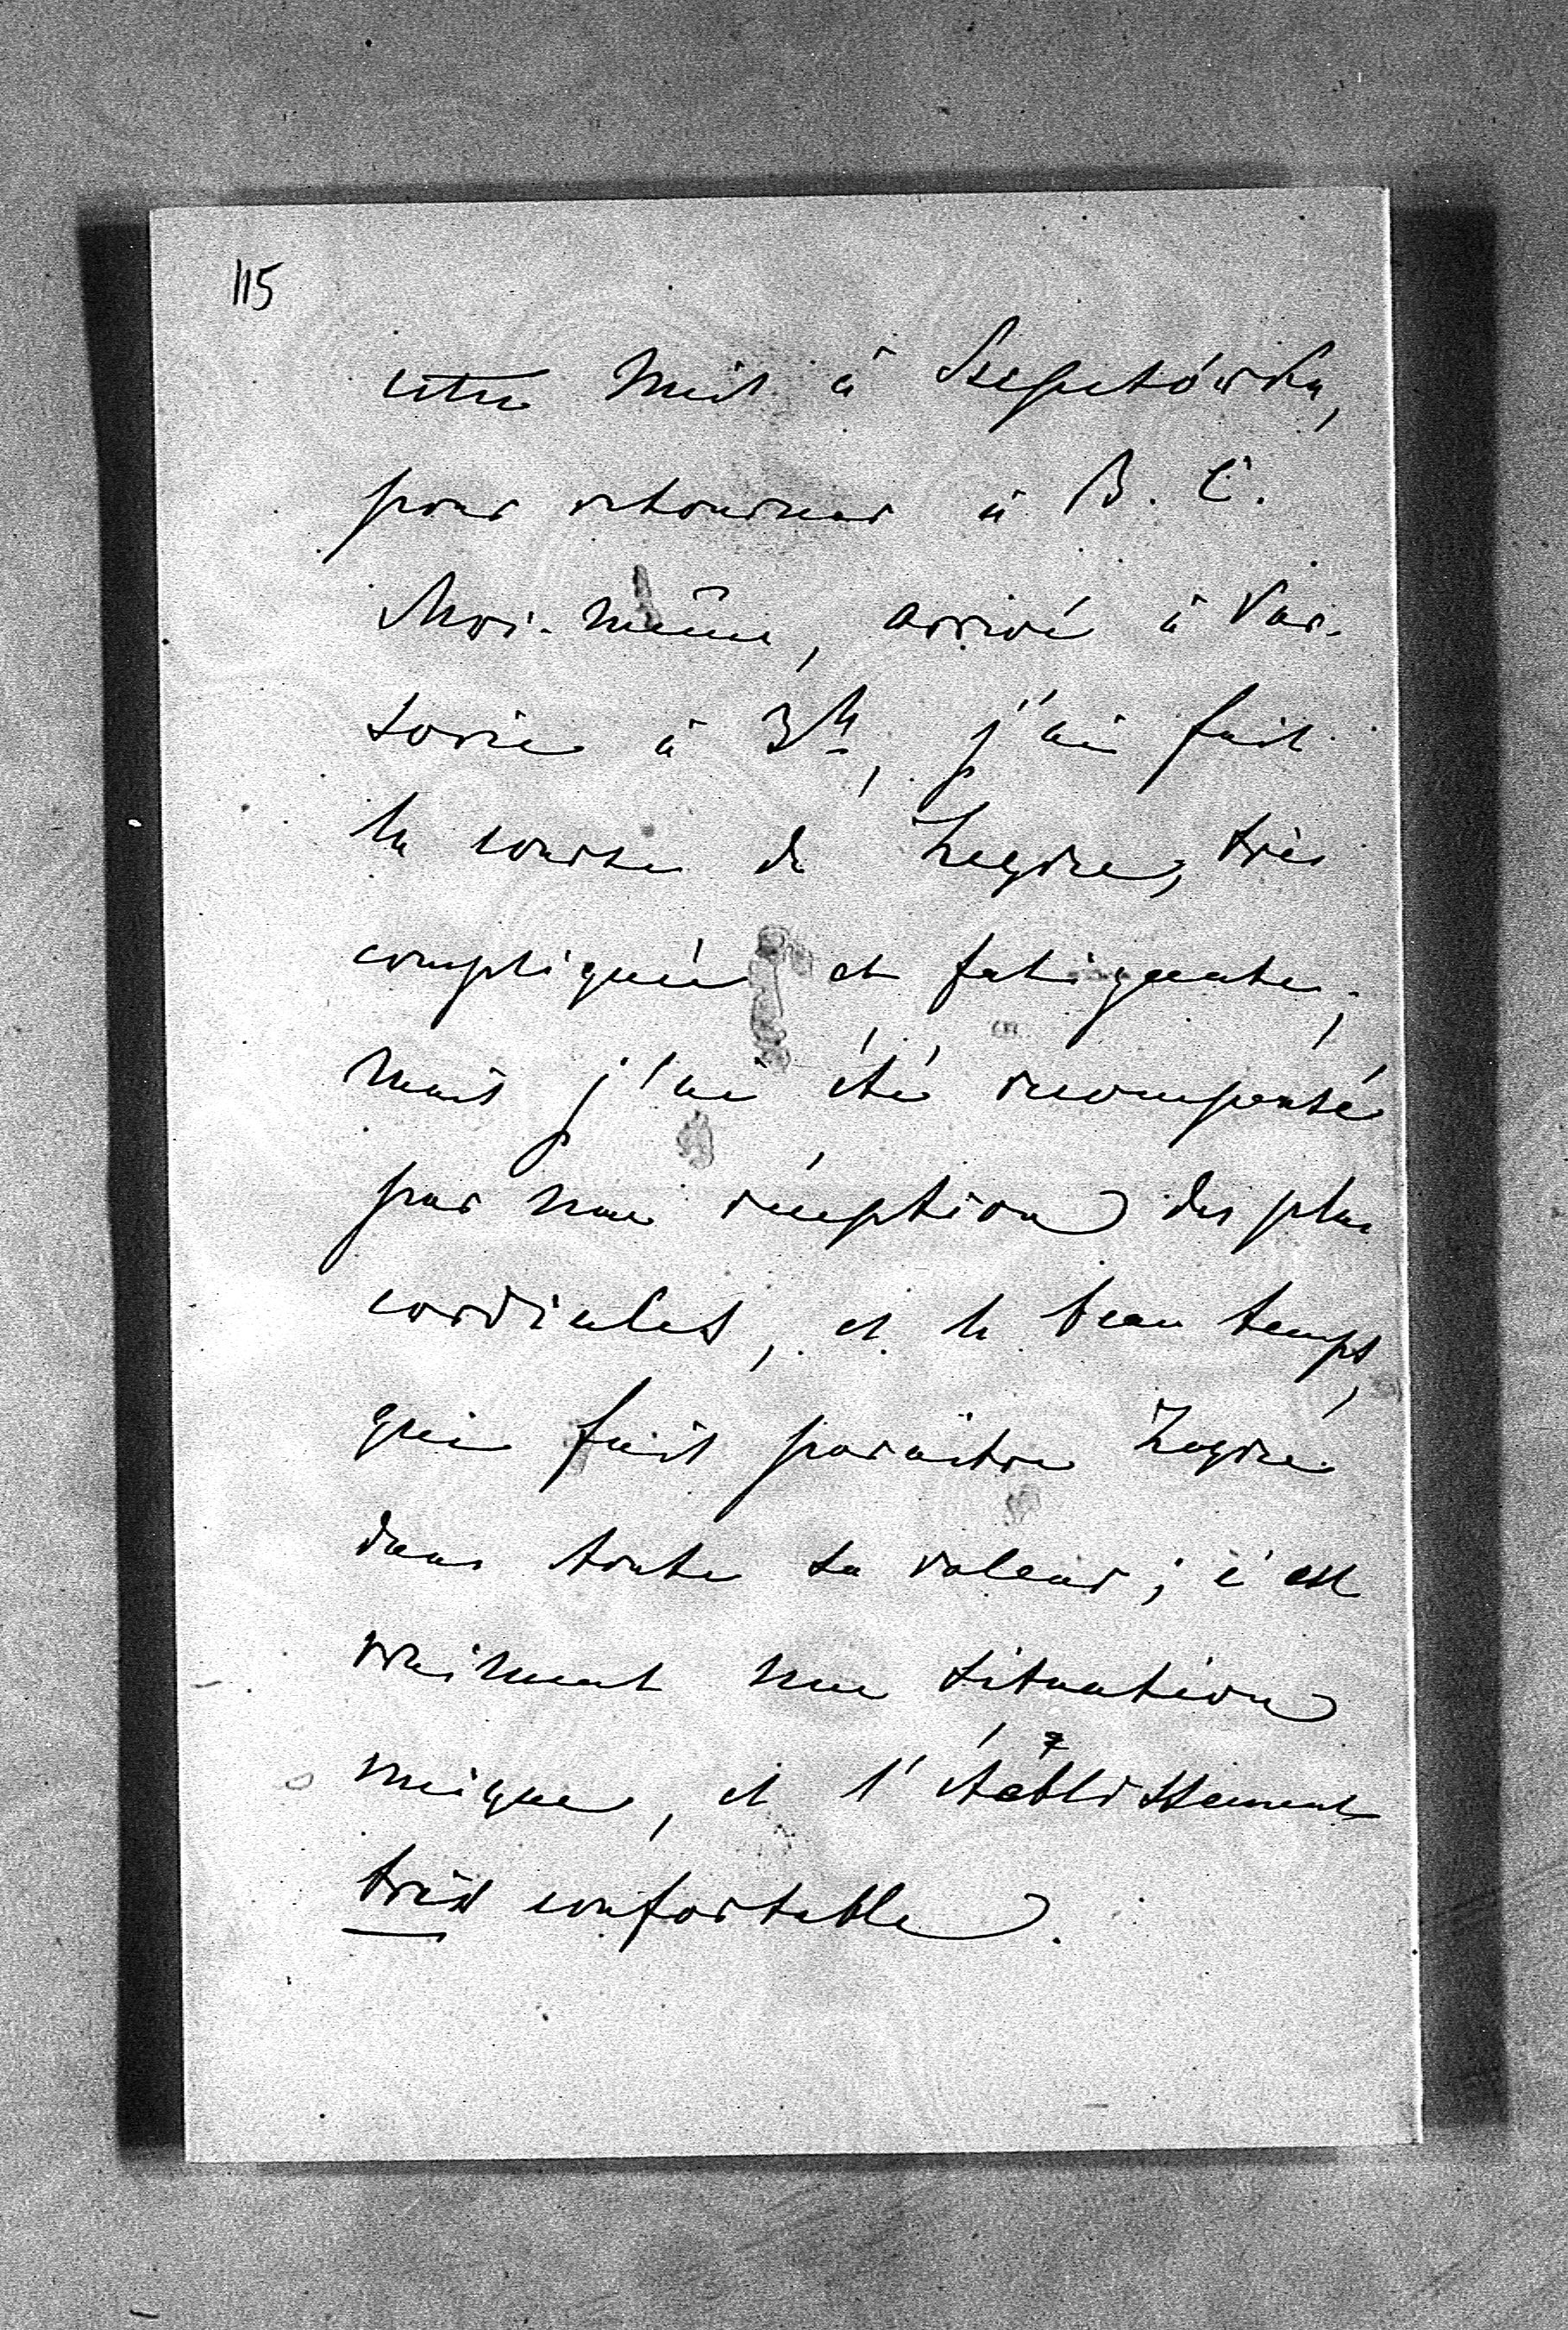 115
cette nuit à Szepetówka,
pour retourner à B. C.
Moi-même, arrivé à Var-
sovie à 3h, j'ai fait
la course de Zegrze, très
compliquée et fatigante,
mais j'ai été récompensé
par une réception des plus
cordiales, et le beau temps,
qui fait paraitre Zegrze
dans toute sa valeur; c'est
vraiment une situation
unique, et l'établissement
très confortable.